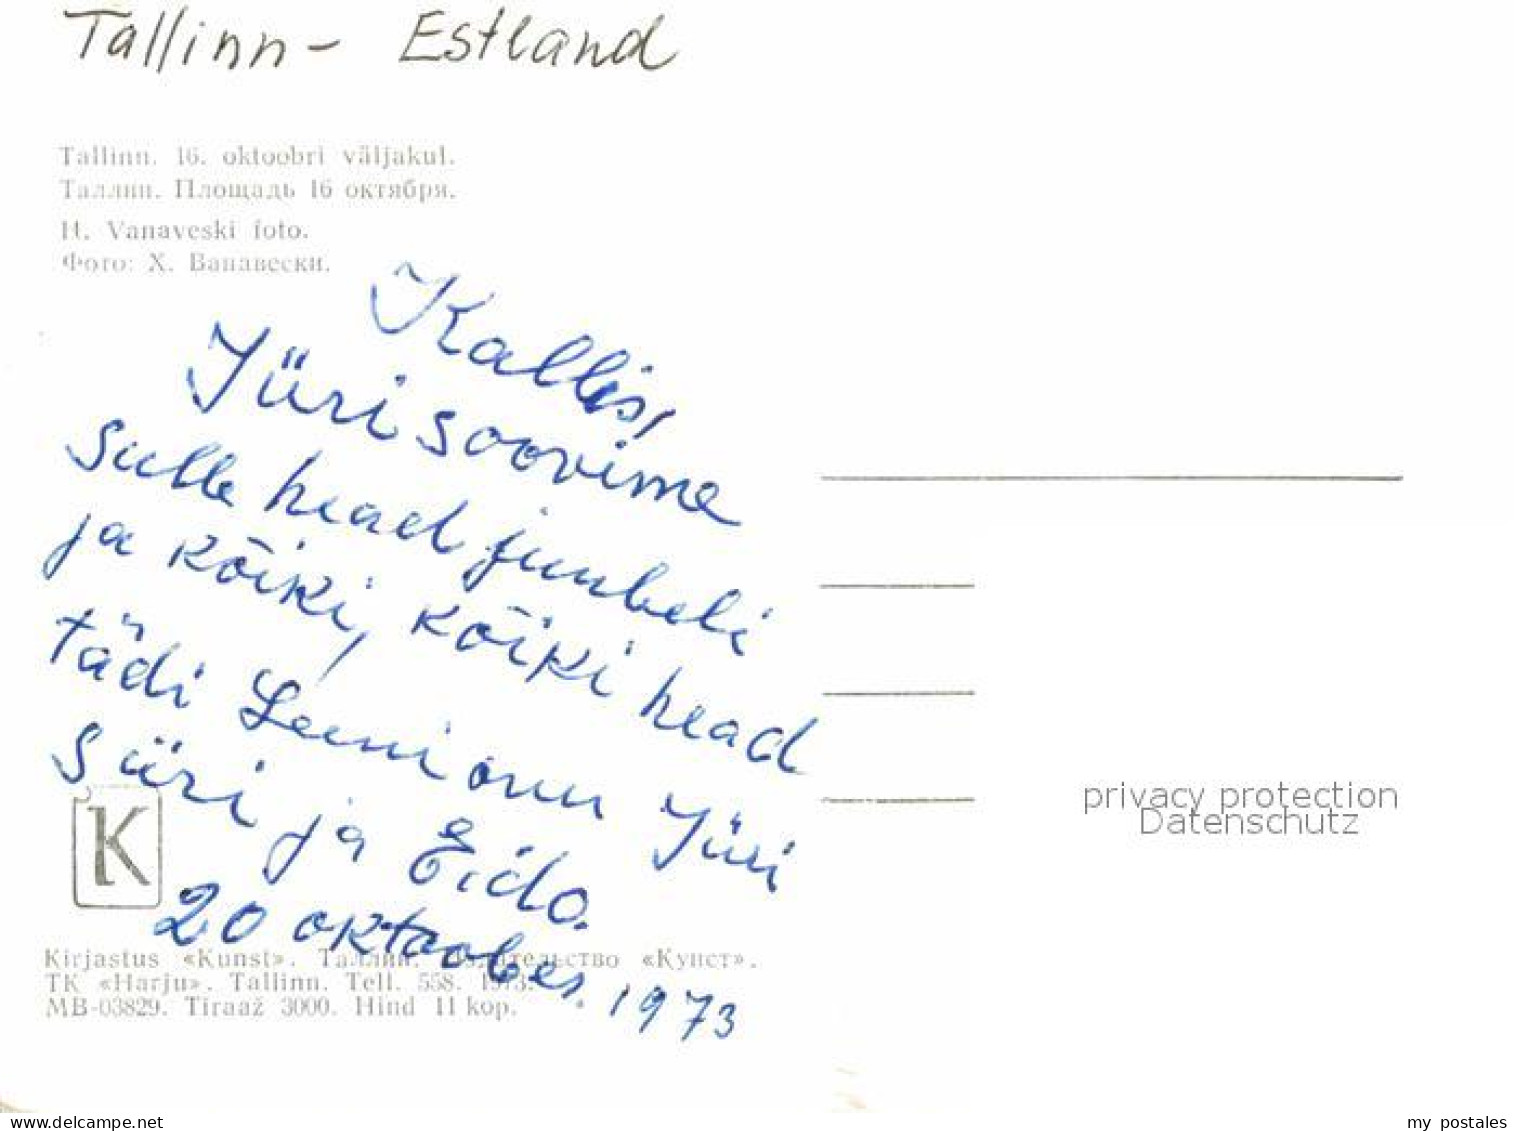 Tallinn - Estland
Tallinn. 16. oktoobri väljakul.
Таллин. Площадь 16 октября.
H. Vanaveski foto.
Фото: Х. Ванавески.
Kallis,
Jüri soovime
Sulle head juubeli
ja kõiki, kõiki head
tädi Leeni onu Jüri
Süri ja Eido.
20 oktoober. 1973
K
Kirjastus «Kunst». Таллин. Издательство «Кунст».
TK «Harju». Tallinn. Tell. 558. 1973.
MB-03829. Tiraaž 3000. Hind 11 kop.
privacy protection
Datenschutz
www.delcampe.net
my_postales